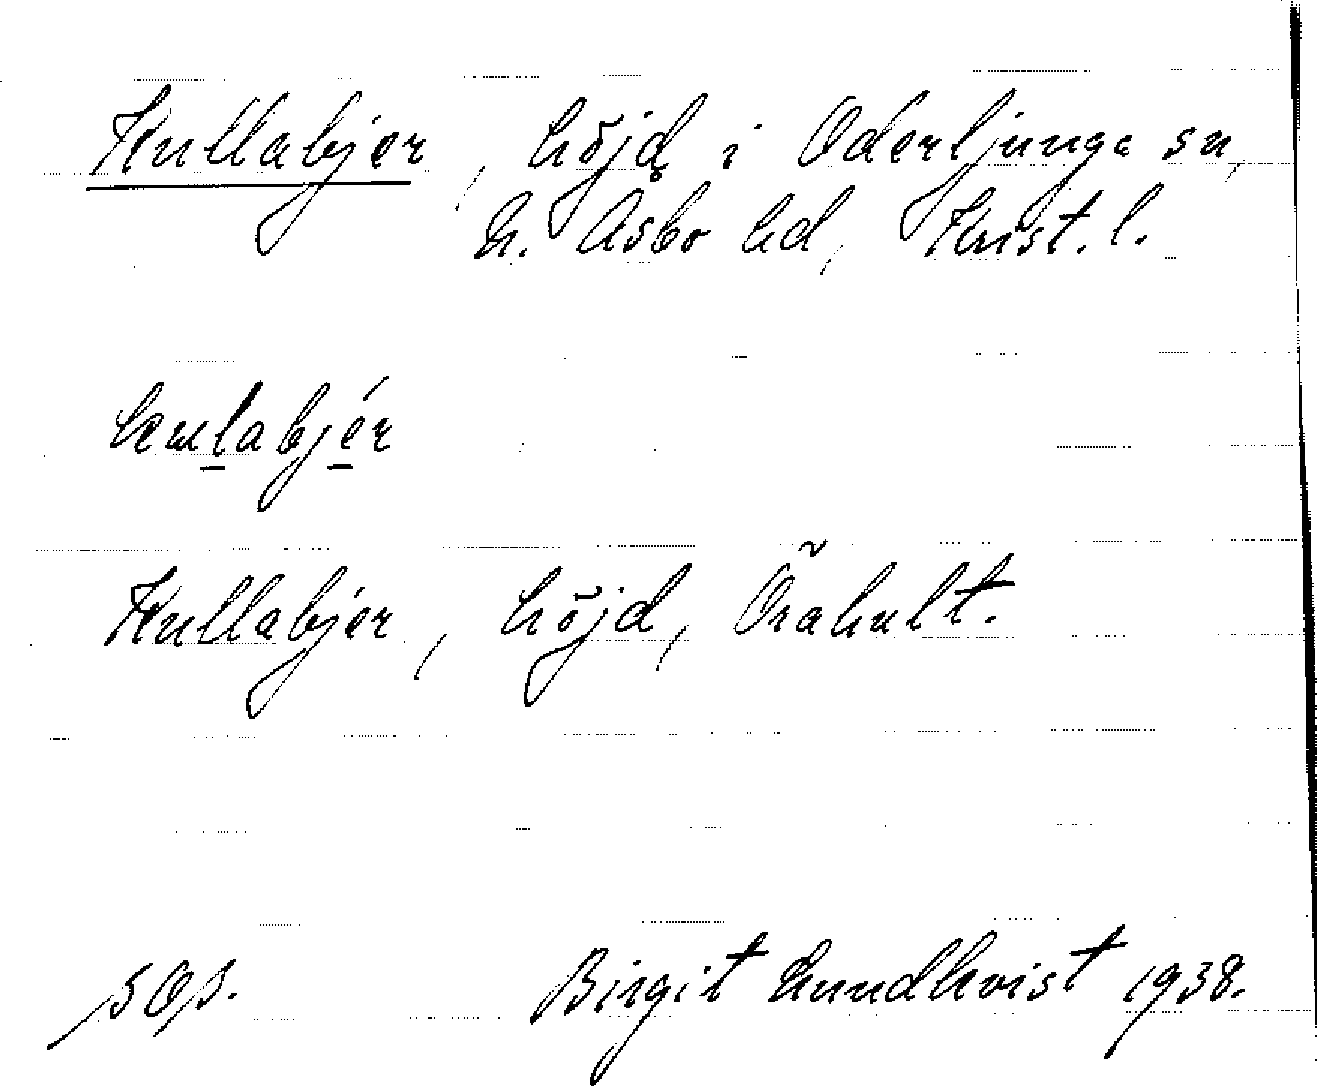 Kullabjer, höjd i Oderljunga sn,
N. Åsbo hd, Krist. l.
Kullabjer, höjd, Örahult.
Birgit Lundkvist 1938.